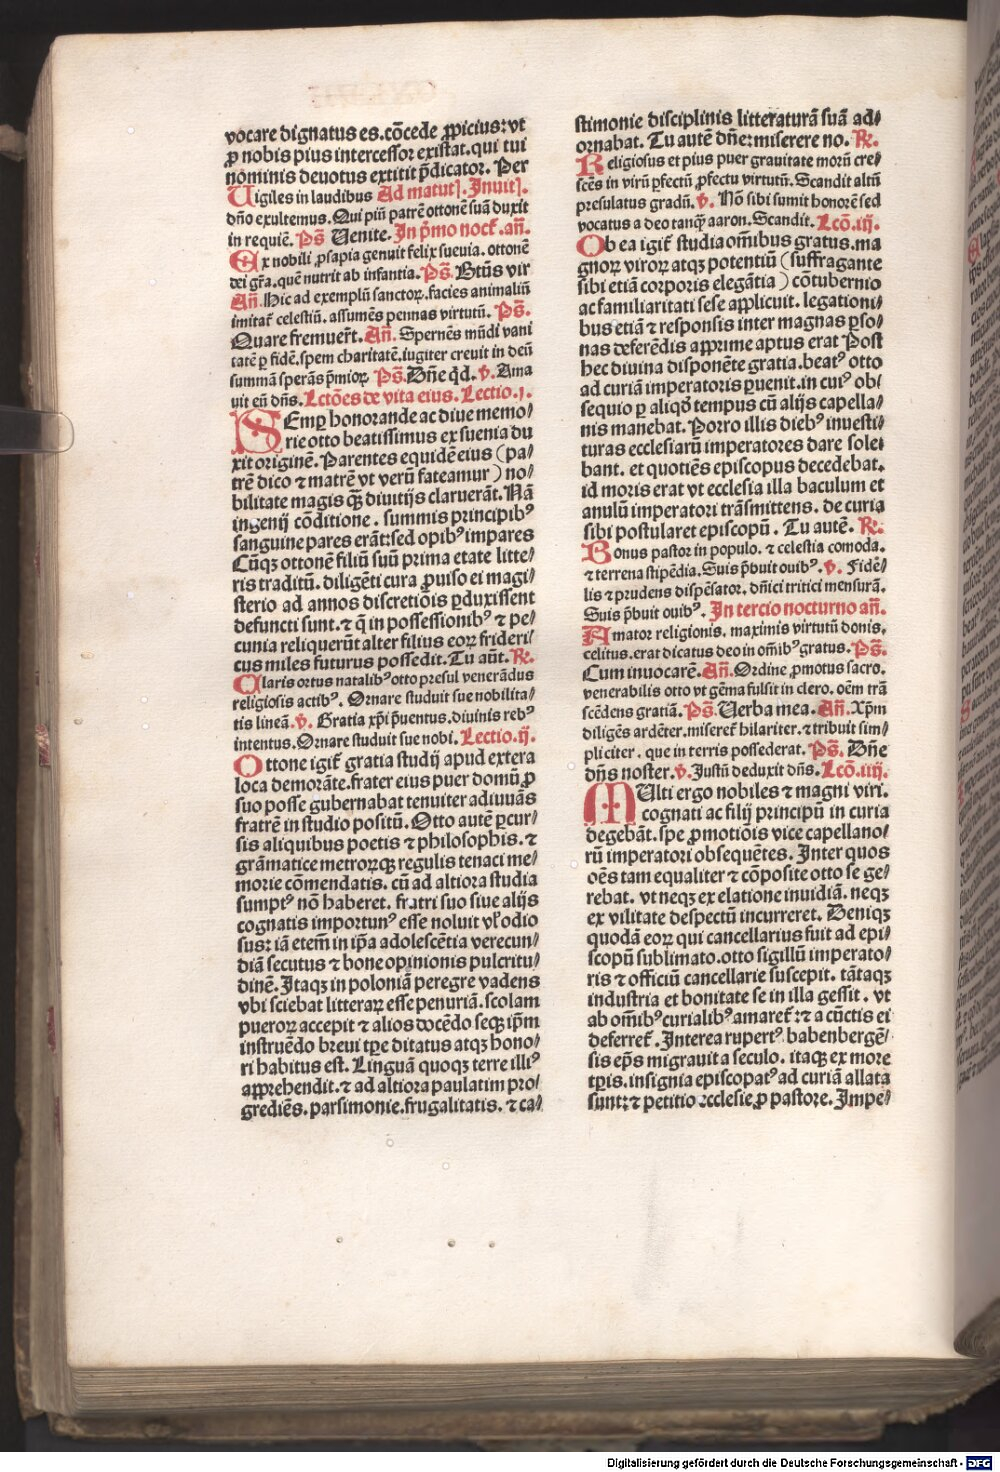 vocare dignatus es.cōcede ꝓpicius:vt
ꝑ nobis pius intercessor existat.qui tui
nominis deuotus extitit p̄dicator. Per
Uigiles in laudibus Ad matut̄. Inuit̄.
dn̄o exultemus. Qui piū patrē ottonē suā duxit
in requiē. Ps̄ Uenite. In p̄mo noct̄. an̄.
Ex nobili ꝓsapia genuit felix sueuia. ottonē
dei gr̄a. quē nutrit ab infantia. Ps̄. Btūs vir
An̄. Hic ad exemplū sanctoꝝ. facies animaliū
imitat̄ celestiū. assumēs pennas virtutū. Ps̄.
Quare fremuer̄t. An̄. Spernēs mūdi vani
tatē ꝑ fidē. spem charitatē. iugiter creuit in deū
summā sperās p̄mioꝝ Ps̄. Dn̄e q̄d. v̄. Ama
uit eū dn̄s. Lctōes de vita eius. Lectio.j.
SEmꝑ honorande ac diue memo⸗
rie otto beatissimus ex sueuia du
xit originē. Parentes equidē eius (pa⸗
trē dico ⁊ matrē vt verū fateamur) no⸗
bilitate magis qȝ̄ diuitijs claruerāt. Nā
ingenij cōditione. summis principibꝰ
sanguine pares erāt: sed opibꝰ impares
Cūqȝ ottonē filiū suū prima etate litte⸗
ris traditū. diligēti cura ꝓuiso ei magi⸗
sterio ad annos discretiōis ꝑduxissent
defuncti sunt. ⁊ q̄ in possessionibꝰ ⁊ pe⸗
cunia reliquerūt alter filius eoꝝ frideri⸗
cus miles futurus possedit. Tu aūt. R̄.
Claris ortus natalibꝰ otto presul venerādus
religiosis actibꝰ. Ornare studuit sue nobilita⸗
tis lineā. v̄. Gratia xp̄i p̄uentus. diuinis rebꝰ
intentus. Ornare studuit sue nobi. Lectio.ij.
Ottone igit̄ gratia studij apud extera
loca demorāte. frater eius puer domū ꝓ
suo posse gubernabat tenuiter adiuuās
fratrē in studio positū. Otto autē ꝑcur⸗
sis aliquibus poetis ⁊ philosophis. ⁊
grāmatice metroꝝqȝ regulis tenaci me⸗
morie cōmendatis. cū ad altiora studia
sumptꝰ nō haberet. fratri suo siue alijs
cognatis importunꝰ esse noluit vl̄ odio
sus: iā etem̄ in ip̄a adolescētia verecun⸗
diā secutus ⁊ bone opinionis pulcritu⸗
dinē. Itaqȝ in poloniā peregre vadens
vbi sciebat litteraꝝ esse penuriā. scolam
pueroꝝ accepit ⁊ alios docēdo seqȝ ip̄m
instruēdo breui tꝑe ditatus atqȝ hono⸗
ri habitus est. Linguā quoqȝ terre illiꝰ
apprehendit. ⁊ ad altiora paulatim pro⸗
grediēs. parsimonie. frugalitatis. ⁊ ca⸗
stimonie disciplinis litteraturā suā ad⸗
ornabat. Tu autē dn̄e: miserere no. R̄.
Religiosus et pius puer grauitate morū cre⸗
scēs in virū ꝑfectū ꝓfectu virtutū. Scandit altū
presulatus gradū. v̄. Nō sibi sumit honorē sed
vocatus a deo tanqȝ aaron. Scandit. Lcō.iij.
Ob ea igit̄ studia om̄ibus gratus. ma
gnoꝝ viroꝝ atqȝ potentiū (suffragante
sibi etiā corporis elegātia) cōtubernio
ac familiaritati sese applicuit. legationi⸗
bus etiā ⁊ responsis inter magnas ꝑso⸗
nas deferēdis apprime aptus erat Post
hec diuina disponēte gratia. beatꝰ otto
ad curiā imperatoris ꝑuenit. in cuiꝰ ob⸗
sequio ꝑ aliqd̄ tempus cū alijs capella⸗
nis manebat. Porro illis diebꝰ inuesti⸗
turas ecclesiarū imperatores dare sole⸗
bant. et quotiēs episcopus decedebat.
id moris erat vt ecclesia illa baculum et
anulū imperatori trāsmittens. de curia
sibi postularet episcopū. Tu autē. R̄.
Bonus pastor in populo. ⁊ celestia comoda.
⁊ terrena stipēdia. Suis p̄buit ouibꝰ. v̄. Fidē⸗
lis ⁊ prudens dispēsator. dn̄ici tritici mensurā.
Suis p̄buit ouibꝰ. In tercio nocturno an̄.
Amator religionis. maximis virtutū donis.
celitus. erat dicatus deo in om̄ibꝰ gratus. Ps̄.
Cum inuocarē. An̄. Ordine ꝓmotus sacro.
venerabilis otto vt gēma fulsit in clero. oēm trā
scēdens gratiā. Ps̄. Uerba mea. An̄. Xp̄m
diligēs ardēter. miseret̄ hilariter. ⁊ tribuit sim⸗
pliciter. que in terris possederat. Ps̄. Dn̄e
dn̄s noster. v̄. Justū deduxit dn̄s. Lcō.iiij.
MUlti ergo nobiles ⁊ magni viri.
cognati ac filij principū in curia
degebāt. spe ꝓmotiōis vice capellano⸗
rū imperatori obsequētes. Inter quos
oēs tam equaliter ⁊ cōposite otto se ge⸗
rebat. vt neqȝ ex elatione inuidiā. neqȝ
ex vilitate despectū incurreret. Deniqȝ
quodā eoꝝ qui cancellarius fuit ad epi⸗
scopū sublimato. otto sigillū imperato⸗
ris ⁊ officiū cancellarie suscepit. tātaqȝ
industria et bonitate se in illa gessit. vt
ab om̄ibꝰ curialibꝰ amaret̄: ⁊ a cūctis ei
deferret̄. Interea rupertꝰ babenbergē⸗
sis ep̄s migrauit a seculo. itaqȝ ex more
tꝑis. insignia episcopatꝰ ad curiā allata
sunt: ⁊ petitio ecclesie ꝓ pastore. Impe⸗
Digitalisierung gefördert durch die Deutsche Forschungsgemeinschaft - DFG